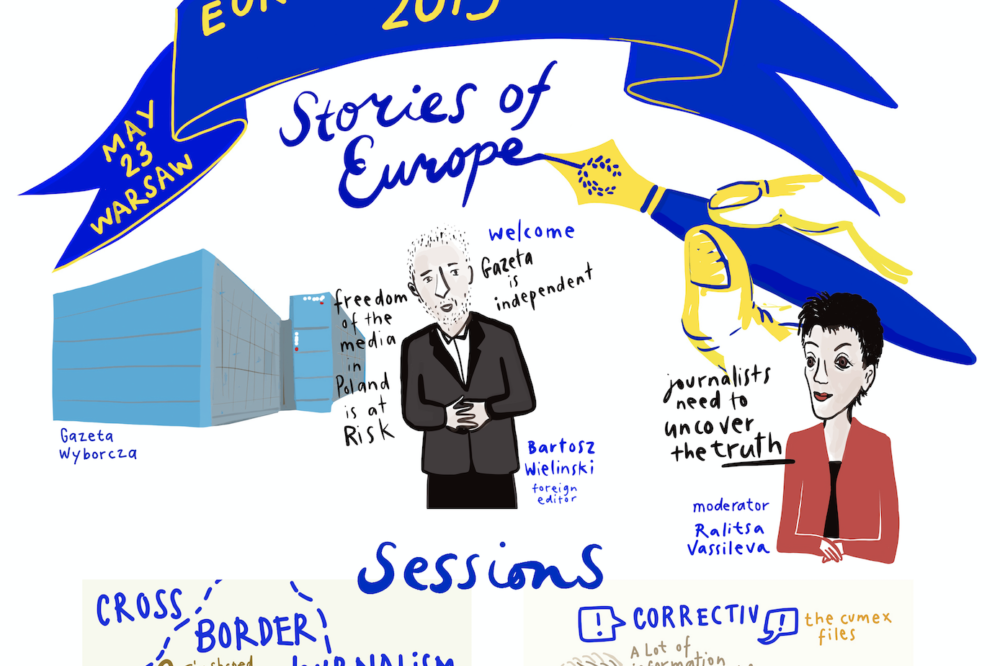 2019
MAY
23
WARSAW
Stories of
Europe
welcome
Gazeta
is
independent
freedom
of the
media
in
Poland
is at
Risk
Gazeta
Wyborcza
Bartosz
Wielinski
foreign
editor
journalists
need to
uncover
the truth
moderator
Ralitsa
Vassileva
Sessions
CROSS
BORDER
JOURNALISM
CORRECTIV
the cumex
files
A Lot of
information